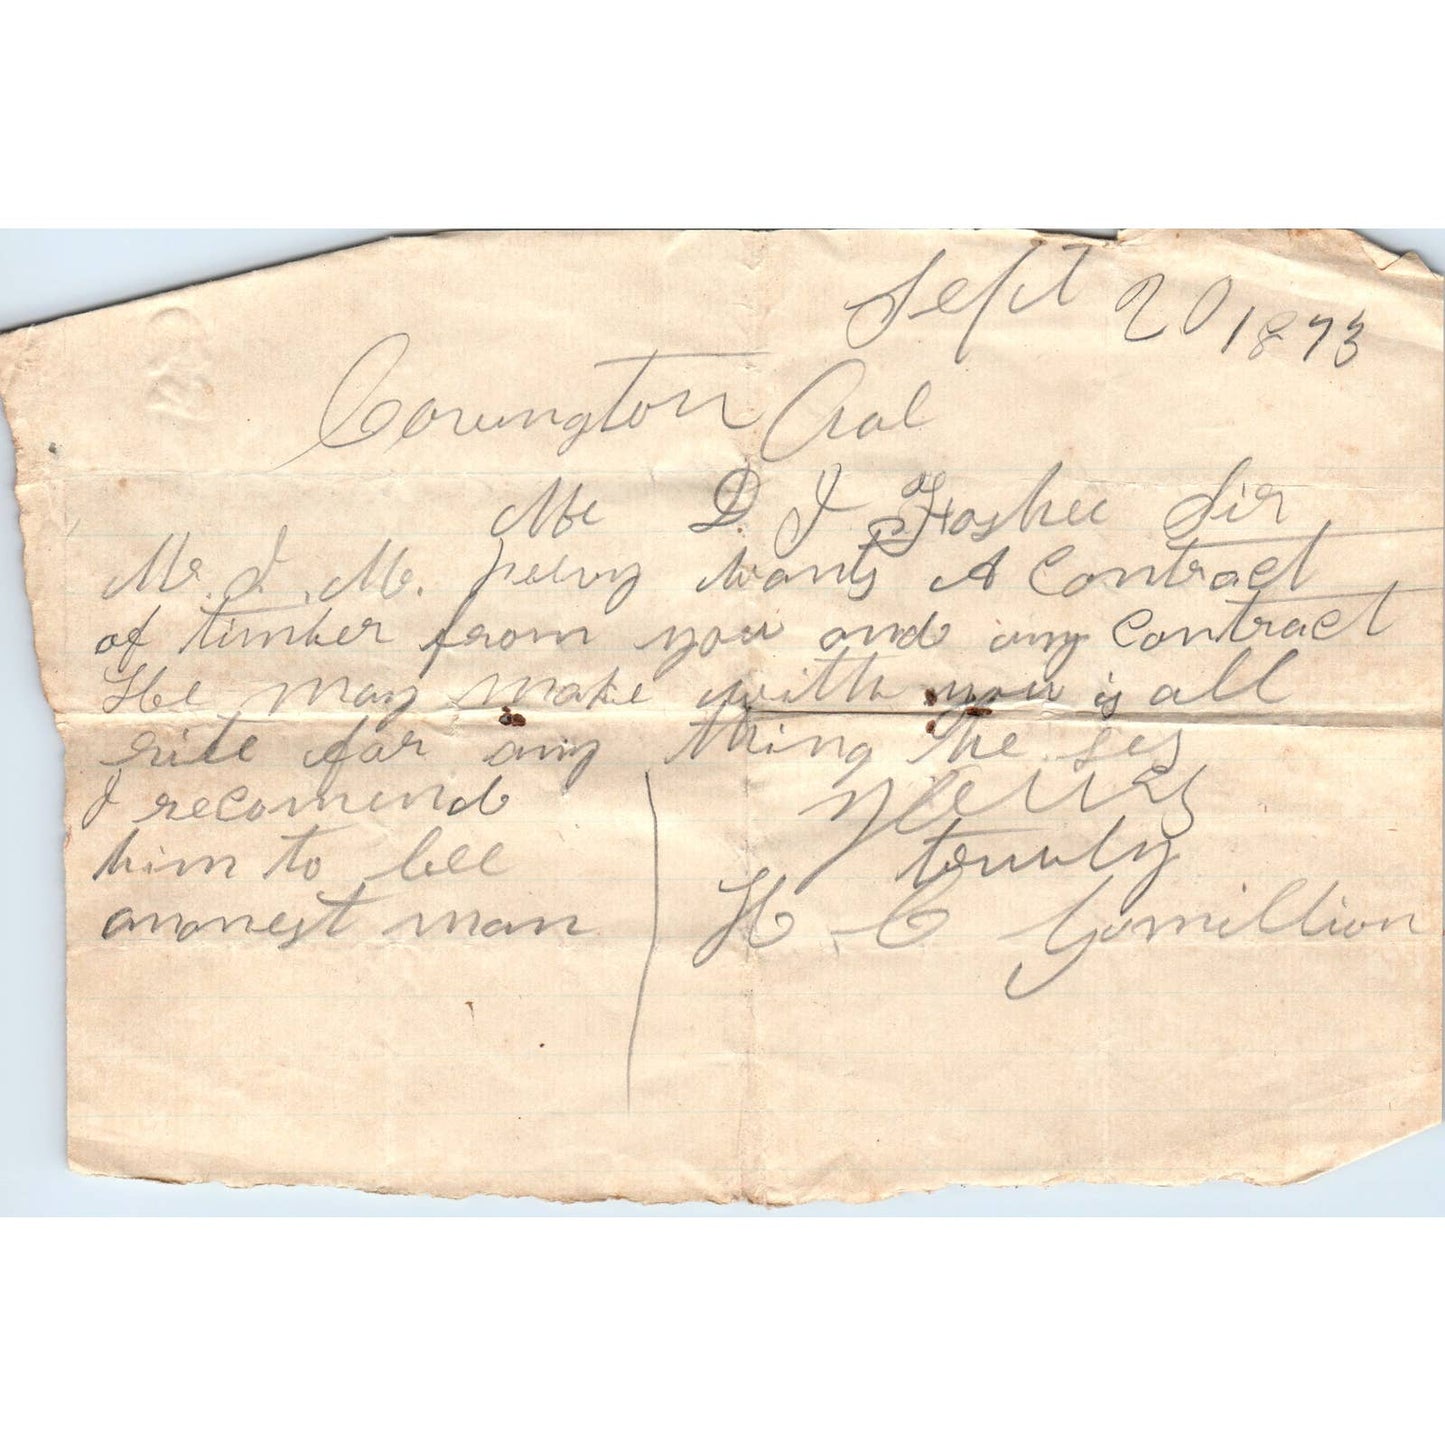 Sept 20 1873
Covington Coal
Mr D. J Foshee Sir
Mr. J. M. wants A Contract
of timber from you and any Contract
He may make with you is all
rite for any thing he ses
I recomend
him to bee
anonest man
Yours
truly
H C Gomillion